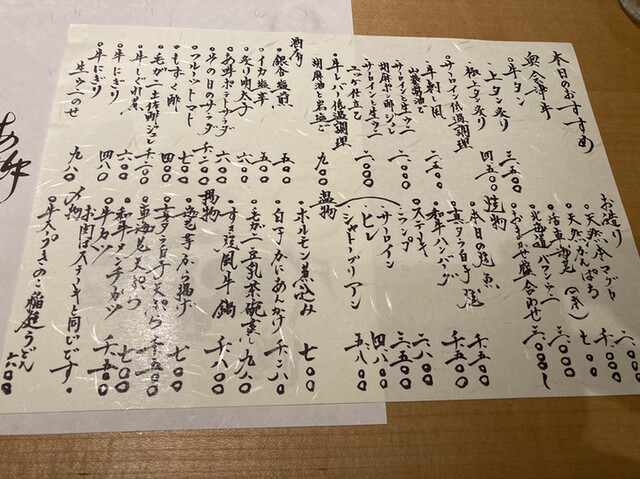 本日のおすすめ
奥会津牛
・牛タン 三五〇〇
・上タン炙り
・極上タン炙り 四五〇〇
・サーロイン低温調理
・牛刺し風 二五〇〇
山葵醤油で
・サーロインと生ウニ
胡麻ポン酢ジュレ
・サーロインと生ウニ 三〇〇〇
ユッケ仕立て
・牛レバー低温調理
胡麻油と岩塩で 九〇〇
酒肴
・銀杏塩煎 五〇〇
・イカ塩辛 五〇〇
・炙り明太子 六〇〇
・あ牟ポテトサラダ 六〇〇
・本日のサラダ 千二〇〇
・フルーツトマト 七〇〇
・もずく酢 四〇〇
・毛ガニ土佐酢ジュレ 千二〇〇
・牛しぐれ煮 六〇〇
・牛にぎり 四八〇
・牛にぎり
生ウニのせ 九八〇
お造り
・天然本マグロ
・天然かんぱち
・活車海老
・北海道バフンウニ
・おまかせ盛合わせ 三〇〇〇〜
焼物
・本日の焼魚 千五〇〇
・真タラ白子焼 千五〇〇
・和牛ハンバーグ
・ステーキ
・ランプ 二八〇〇
・サーロイン 三五〇〇
・ヒレ 四八〇〇
・シャトーブリアン 五八〇〇
温物
・ホルモン煮込み 七〇〇
・白子かにあんかけ 千二八〇
・毛ガニ豆乳茶碗蒸し 九八〇
・すき焼風牛鍋 千八〇〇
揚物
・海老芋から揚げ 七〇〇
・真タラ白子天ぷら 千五〇〇
・車海老天ぷら 七〇〇
・和牛タンチカツ 七〇〇
・牛カツ 千五〇〇
お肉はステーキと同じです。
〆物
・牛スープきのこ稲庭うどん 六〇〇